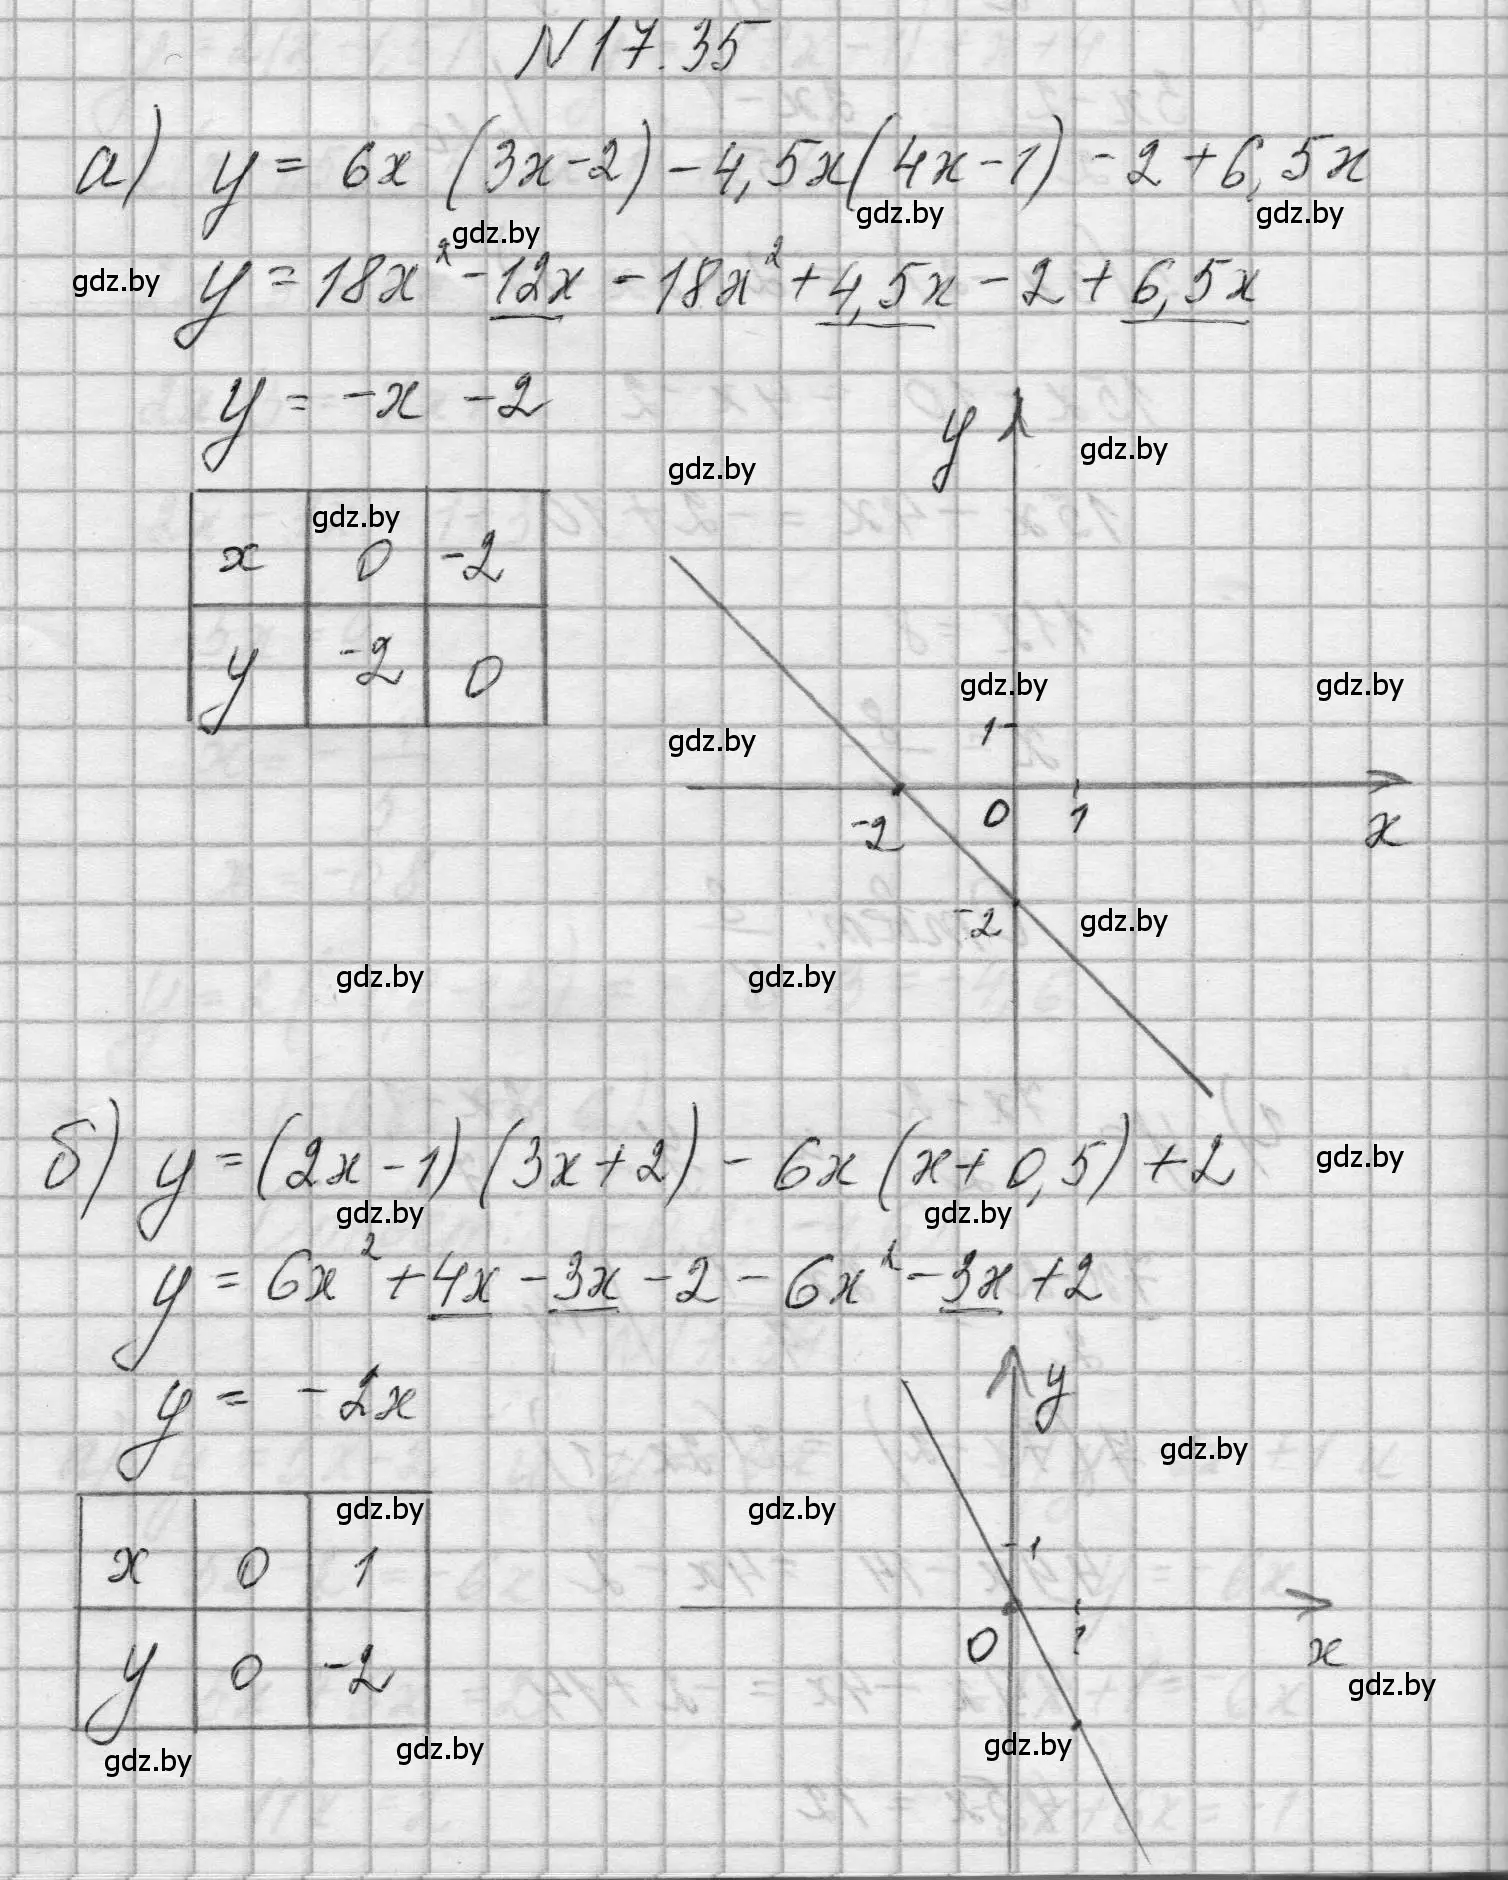 N 17.35
а) y = 6x (3x-2) - 4,5x(4x-1) - 2 + 6,5x
gdz.by gdz.by gdz.by
gdz.by y = 18x² - 12x - 18x² + 4,5x - 2 + 6,5x
y = -x - 2
y gdz.by
gdz.by
gdz.by
x 0 -2
y -2 0
gdz.by gdz.by
gdz.by 1
-2 0 1 x
-2 gdz.by
gdz.by gdz.by
б) y = (2x-1)(3x+2) - 6x(x+0,5) + 2 gdz.by
gdz.by gdz.by
y = 6x² + 4x - 3x - 2 - 6x² - 3x + 2
y = -2x
y
gdz.by
gdz.by gdz.by
x 0 1
1
0 1 x
y 0 -2
gdz.by
gdz.by gdz.by gdz.by